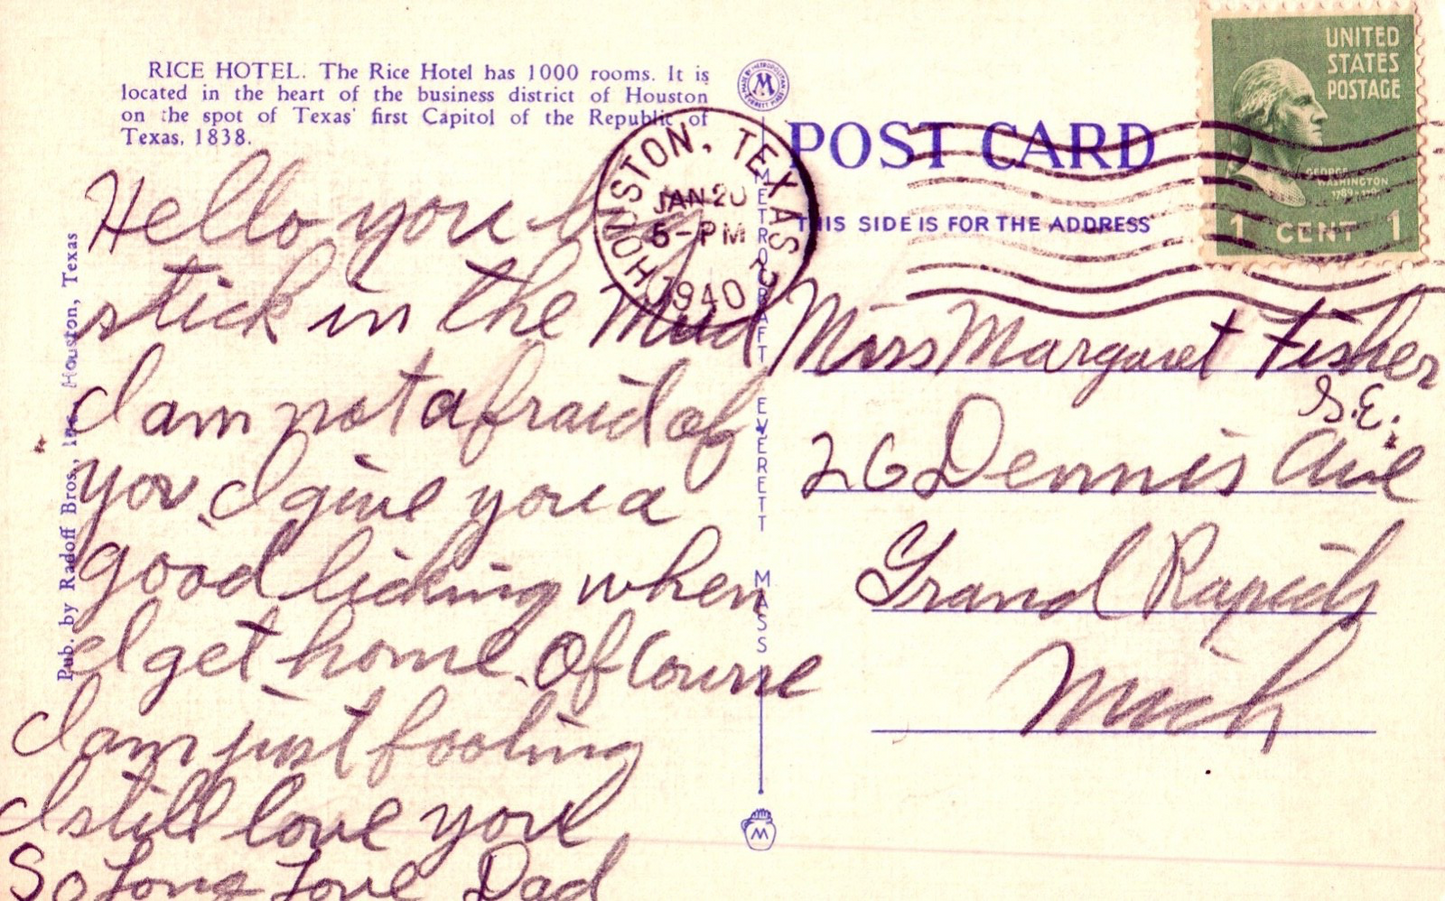 RICE HOTEL. The Rice Hotel has 1000 rooms. It is
located in the heart of the business district of Houston
on the spot of Texas' first Capitol of the Republic of
Texas, 1838.
Hello you big
stick in the Mud
I am not afraid of
you, I give you a
good licking when
I get home. Of Course
I am just fooling
I still love you
So Long Love Dad
Pub. by Radoff Bros., Houston, Texas
M
METROCRAFT EVERETT MASS
M
HOUSTON, TEXAS
JAN 20
5-PM
1940
POST CARD
THIS SIDE IS FOR THE ADDRESS
UNITED
STATES
POSTAGE
GEORGE
WASHINGTON
1 CENT 1
Miss Margaret Fisher
S.E.
26 Dennis Ave
Grand Rapids
Mich